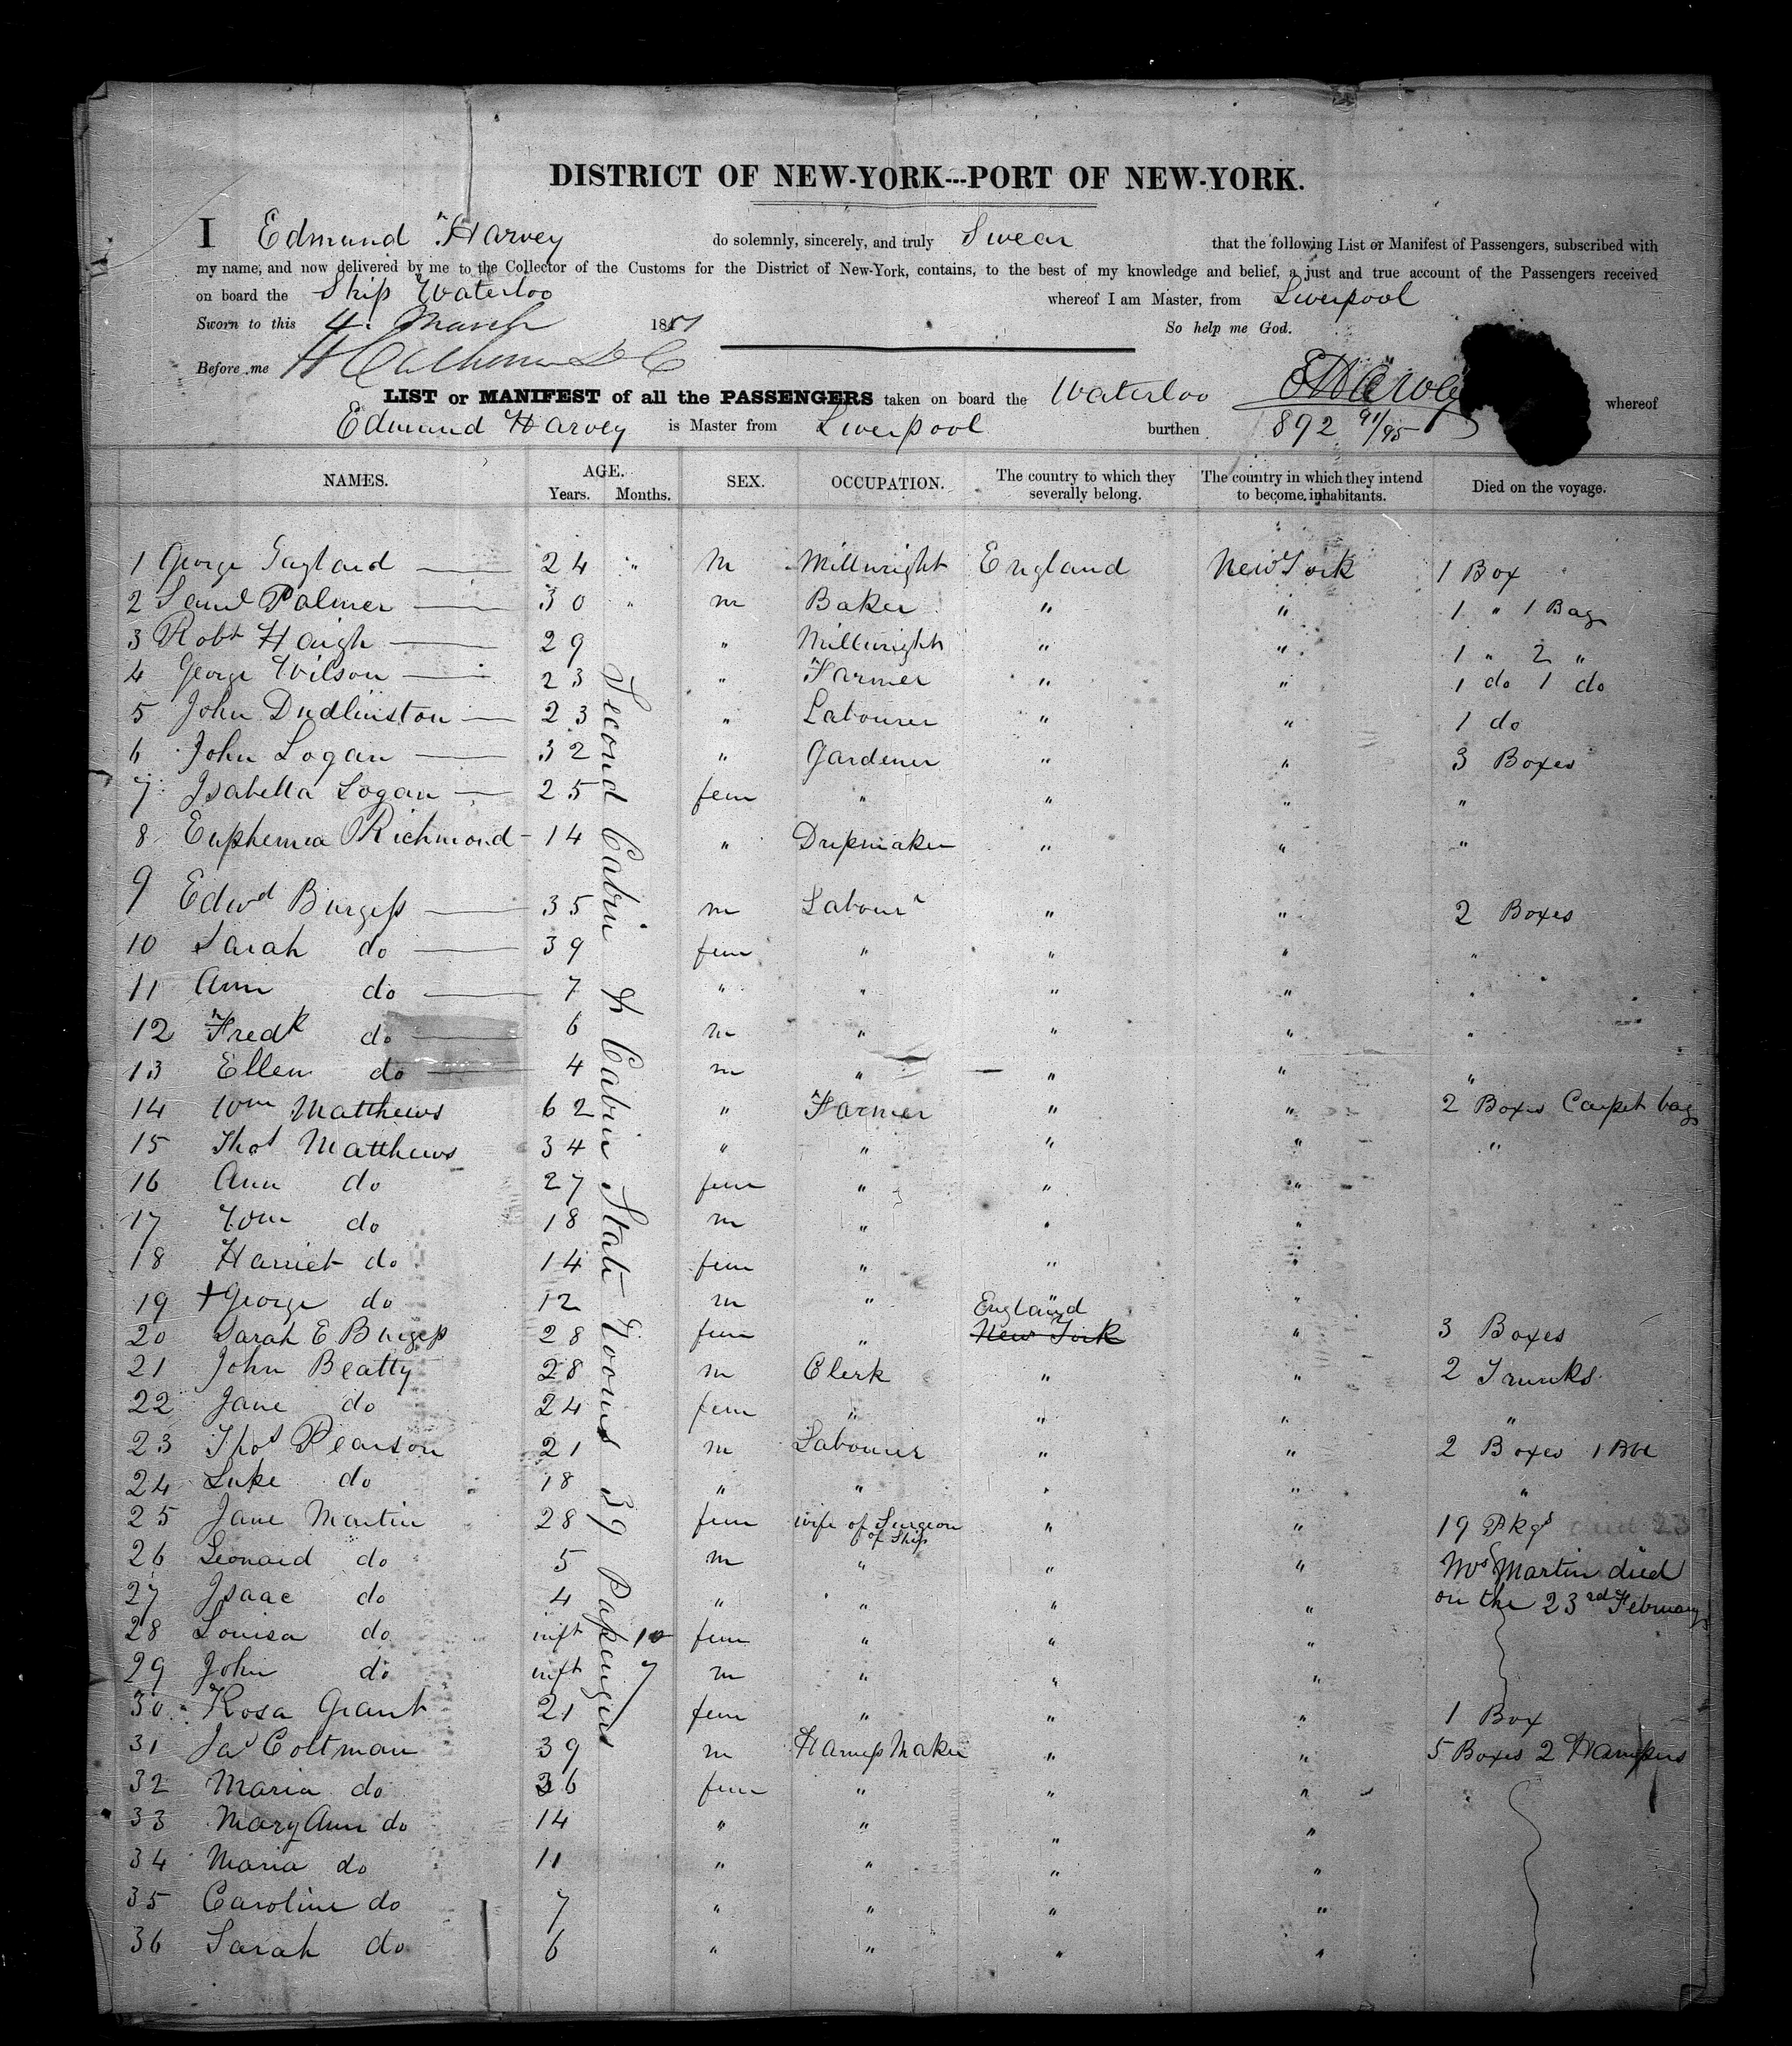 DISTRICT OF NEW-YORK---PORT OF NEW-YORK.
I Edmund Harvey do solemnly, sincerely, and truly Swear that the following List or Manifest of Passengers, subscribed with
my name, and now delivered by me to the Collector of the Customs for the District of New-York, contains, to the best of my knowledge and belief, a just and true account of the Passengers received
on board the Ship Waterloo whereof I am Master, from Liverpool
Sworn to this 4. March 1851 So help me God.
Before me
LIST or MANIFEST of all the PASSENGERS taken on board the Waterloo whereof
Edmund Harvey is Master from Liverpool burthen 892 91/95
NAMES. AGE. Years. Months. SEX. OCCUPATION. The country to which they severally belong. The country in which they intend to become inhabitants. Died on the voyage.
Second Cabin & Cabin State Rooms 39 Passengers
1 George Gaylard 24 " m Millwright England New York 1 Box
2 Saml Palmer 30 " m Baker " " 1 " 1 Bag
3 Robt Haigh 29 " Millwright " " 1 " 2 "
4 George Wilson 23 " Farmer " " 1 do 1 do
5 John Dudlinston 23 " Labourer " " 1 do
6 John Logan 32 " Gardener " " 3 Boxes
7 Isabella Logan 25 fem " " " "
8 Euphemia Richmond 14 " Dressmaker " " "
9 Edwd Burgess 35 m Labourr " " 2 Boxes
10 Sarah do 39 fem " " " "
11 Ann do 7 " " " " "
12 Fredk do 6 m " " " "
13 Ellen do 4 m " " " "
14 Wm Matthews 62 " Farmer " " 2 Boxes Carpet bag
15 Thos Matthews 34 " " " " "
16 Ann do 27 fem " " "
17 Wm do 18 m " " "
18 Harriet do 14 fem " " "
19 +George do 12 m " " "
20 Sarah E Burgess 28 fem " England New York " 3 Boxes
21 John Beatty 28 m Clerk " " 2 Trunks
22 Jane do 24 fem " " " "
23 Thos Pearson 21 m Labourer " " 2 Boxes 1 Bbl
24 Luke do 18 " " " " "
25 Jane Martin 28 fem wife of Surgeon of Ship " " 19 Pkgs died 23
26 Leonard do 5 m " " " Mrs Martin died
27 Isaac do 4 " " " " on the 23rd February
28 Louisa do inft 10 fem " " "
29 John do inft 7 m " " "
30 Rosa Grant 21 fem " " " 1 Box
31 Jas Coltman 39 m Harness Maker " " 5 Boxes 2 Hampers
32 Maria do 36 fem " " "
33 Mary Ann do 14 " " " "
34 Maria do 11 " " " "
35 Caroline do 7 " " " "
36 Sarah do 6 " " " "